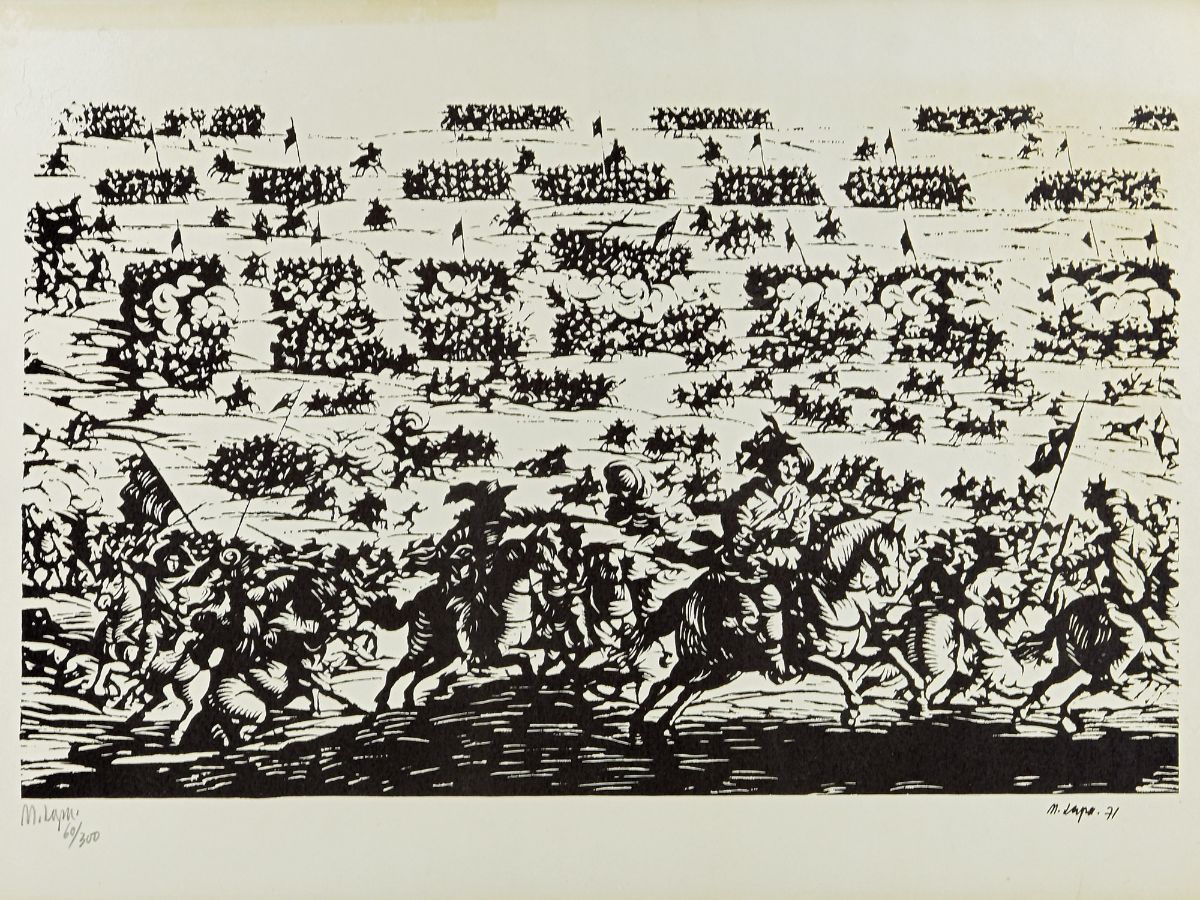 M. Lapa.
60/300
M. Lapa. 71